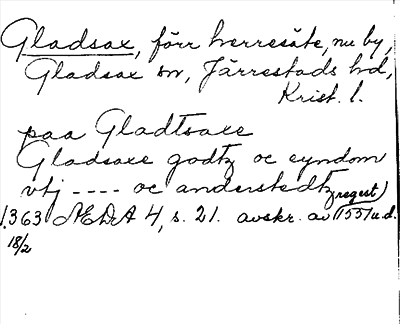 Gladsax, förr herresäte, nu by,
Gladsax sn, Järrestads hd,
Krist. l.
paa Gladtsaxe
Gladsaxe godtz oc eyndom
vtj ---- oc anderstedtz
regest)
1363 ÆDA 4, s. 21. avskr. av 1551 u.d.
18/2